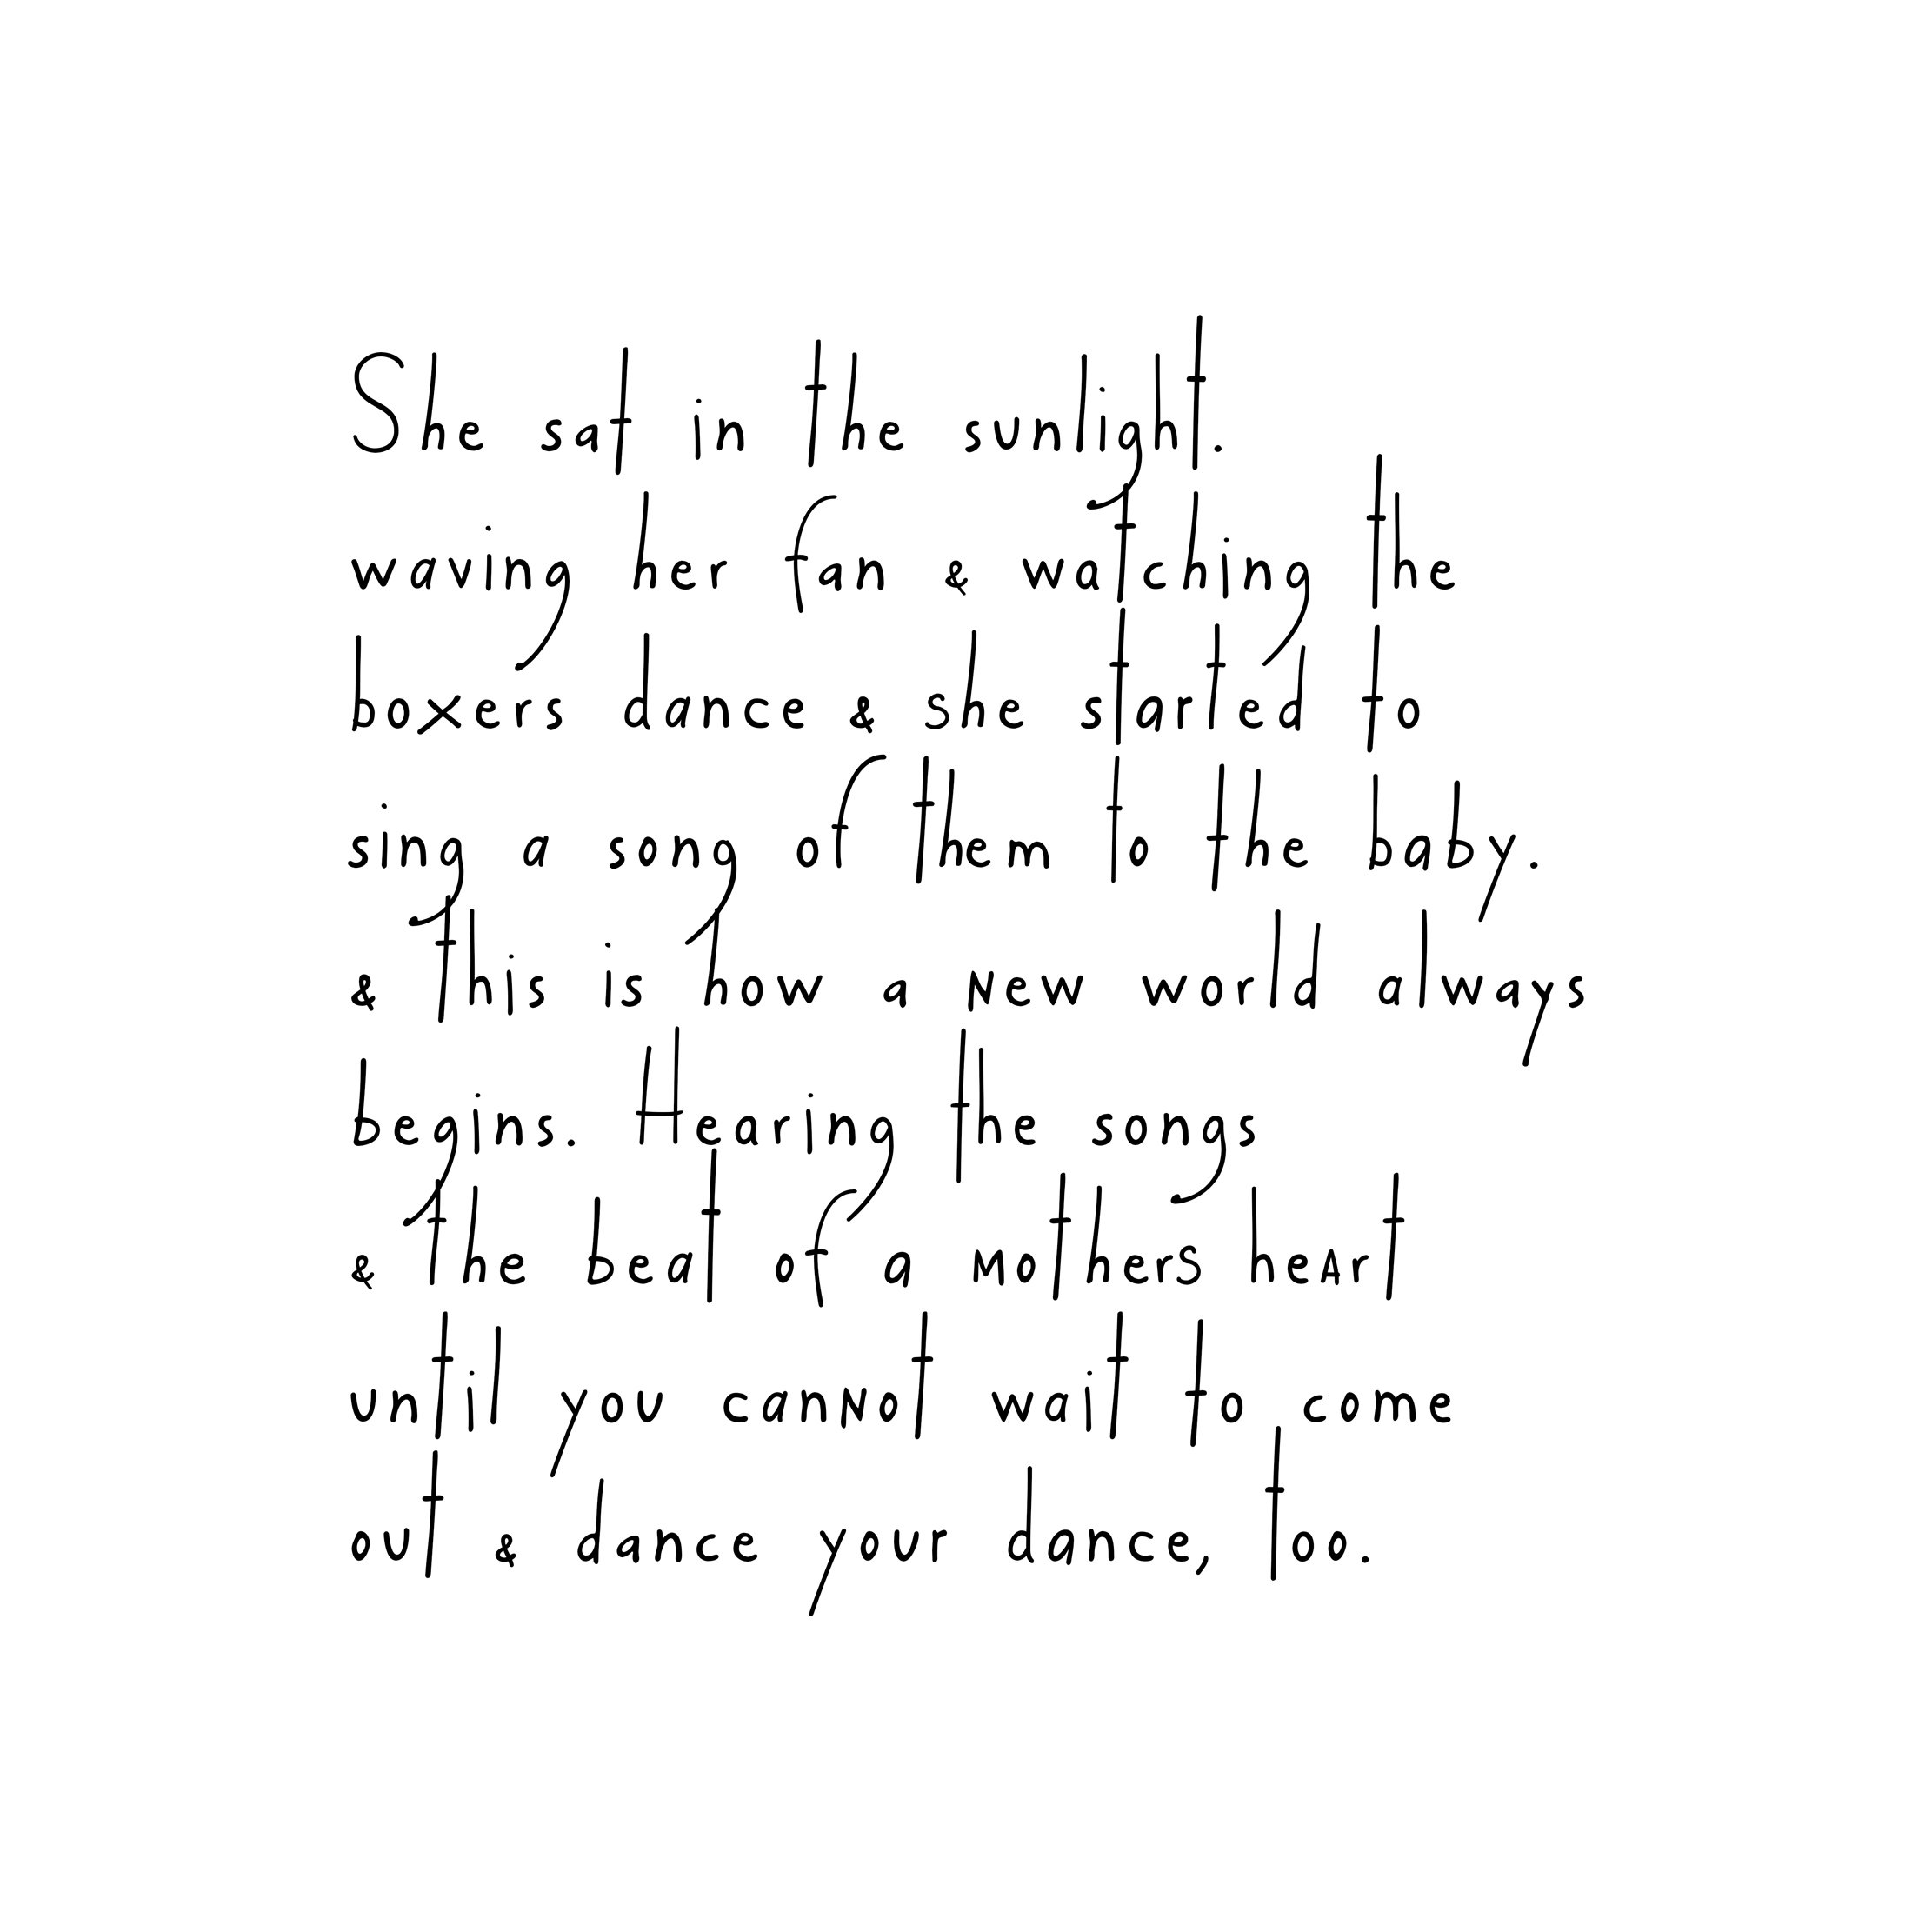 She sat in the sunlight.
waving her fan & watching the
boxers dance & she started to
sing a song of them to the baby.
& this is how a new world always
begins. Hearing the songs
& the beat of a mothers heart
until you cannot wait to come
out & dance your dance, too.